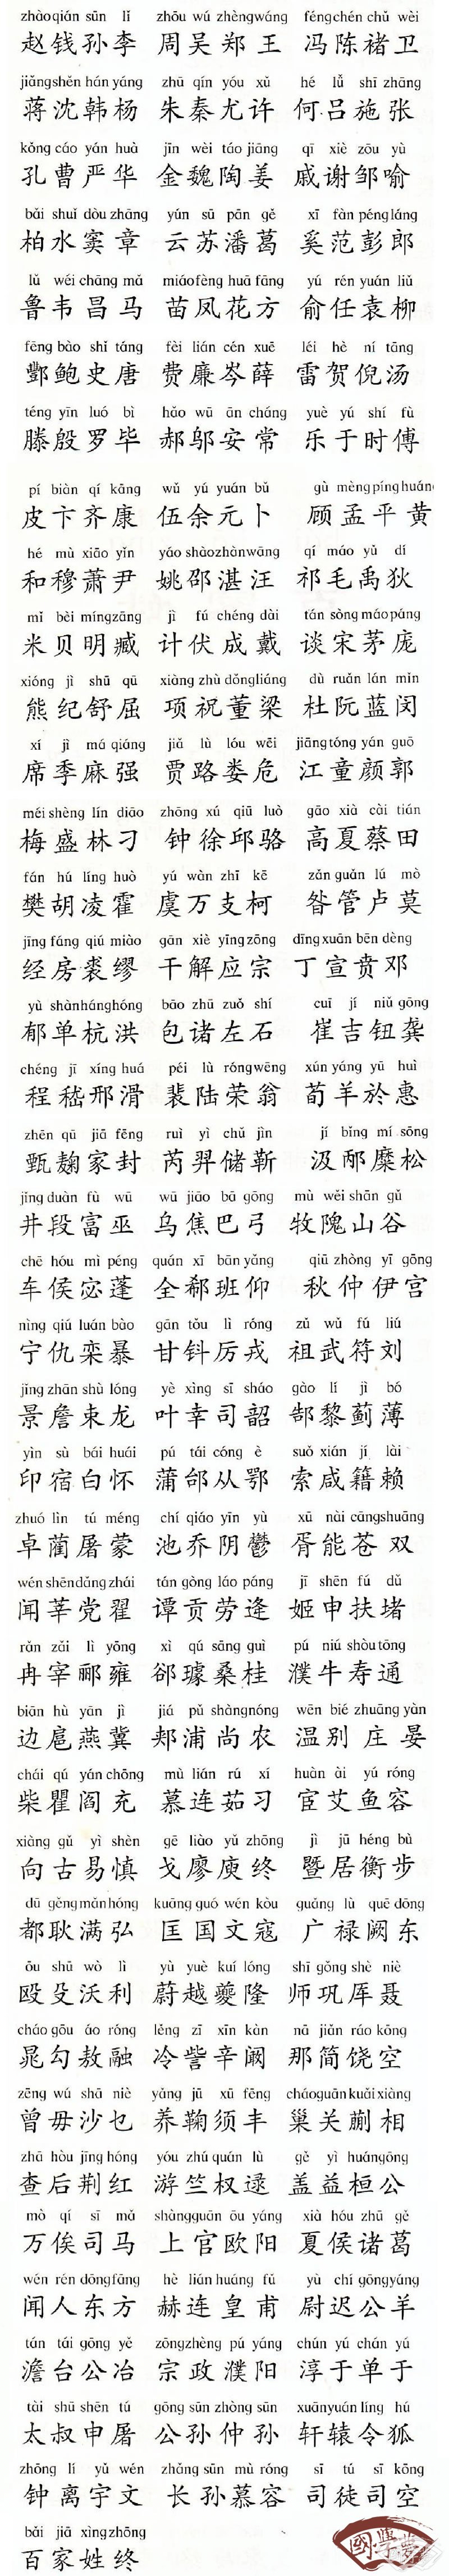 zhào qián sūn lǐ zhōu wú zhèng wáng féng chén chǔ wèi
赵钱孙李 周吴郑王 冯陈褚卫
jiǎng shěn hán yáng zhū qín yóu xǔ hé lǚ shī zhāng
蒋沈韩杨 朱秦尤许 何吕施张
kǒng cáo yán huà jīn wèi táo jiāng qī xiè zōu yù
孔曹严华 金魏陶姜 戚谢邹喻
bǎi shuǐ dòu zhāng yún sū pān gě xī fàn péng láng
柏水窦章 云苏潘葛 奚范彭郎
lǔ wéi chāng mǎ miáo fèng huā fāng yú rén yuán liǔ
鲁韦昌马 苗凤花方 俞任袁柳
fēng bào shǐ táng fèi lián cén xuē léi hè ní tāng
酆鲍史唐 费廉岑薛 雷贺倪汤
téng yīn luó bì hǎo wū ān cháng yuè yú shí fù
滕殷罗毕 郝邬安常 乐于时傅
pí biàn qí kāng wǔ yú yuán bǔ gù mèng píng huáng
皮卞齐康 伍余元卜 顾孟平黄
hé mù xiāo yǐn yáo shào zhàn wāng qí máo yǔ dí
和穆萧尹 姚邵湛汪 祁毛禹狄
mǐ bèi míng zāng jì fú chéng dài tán sòng máo páng
米贝明臧 计伏成戴 谈宋茅庞
xióng jì shū qū xiàng zhù dǒng liáng dù ruǎn lán mǐn
熊纪舒屈 项祝董梁 杜阮蓝闵
xí jì má qiáng jiǎ lù lóu wēi jiāng tóng yán guō
席季麻强 贾路娄危 江童颜郭
méi shèng lín diāo zhōng xú qiū luò gāo xià cài tián
梅盛林刁 钟徐邱骆 高夏蔡田
fán hú líng huò yú wàn zhī kē zǎn guǎn lú mò
樊胡凌霍 虞万支柯 昝管卢莫
jīng fáng qiú miào gān xiè yīng zōng dīng xuān bēn dèng
经房裘缪 干解应宗 丁宣贲邓
yù shàn háng hóng bāo zhū zuǒ shí cuī jí niǔ gōng
郁单杭洪 包诸左石 崔吉钮龚
chéng jī xíng huá péi lù róng wēng xún yáng yū huì
程嵇邢滑 裴陆荣翁 荀羊於惠
zhēn qū jiā fēng ruì yì chǔ jìn jí bǐng mí sōng
甄麹家封 芮羿储靳 汲邴糜松
jǐng duàn fù wū wū jiāo bā gōng mù wěi shān gǔ
井段富巫 乌焦巴弓 牧隗山谷
chē hóu mì péng quán xī bān yǎng qiū zhòng yī gōng
车侯宓蓬 全郗班仰 秋仲伊宫
nìng qiú luán bào gān tǒu lì róng zǔ wǔ fú liú
宁仇栾暴 甘钭厉戎 祖武符刘
jǐng zhān shù lóng yè xìng sī sháo gào lí jì bó
景詹束龙 叶幸司韶 郜黎蓟薄
yìn sù bái huái pú tái cóng è suǒ xián jí lài
印宿白怀 蒲邰从鄂 索咸籍赖
zhuó lìn tú méng chí qiáo yīn yù xū nài cāng shuāng
卓蔺屠蒙 池乔阴鬱 胥能苍双
wén shēn dǎng zhái tán gòng láo páng jī shēn fú dǔ
闻莘党翟 谭贡劳逄 姬申扶堵
rǎn zǎi lì yōng xì qú sāng guì pú niú shòu tōng
冉宰郦雍 郤璩桑桂 濮牛寿通
biān hù yān jì jiá pǔ shàng nóng wēn bié zhuāng yàn
边扈燕冀 郏浦尚农 温别庄晏
chái qú yán chōng mù lián rú xí huàn ài yú róng
柴瞿阎充 慕连茹习 宦艾鱼容
xiàng gǔ yì shèn gē liào yǔ zhōng jì jū héng bù
向古易慎 戈廖庾终 暨居衡步
dū gěng mǎn hóng kuāng guó wén kòu guǎng lù quē dōng
都耿满弘 匡国文寇 广禄阙东
ōu shū wò lì yù yuè kuí lóng shī gǒng shè niè
殴殳沃利 蔚越夔隆 师巩厍聂
cháo gōu áo róng lěng zī xīn kàn nā jiǎn ráo kōng
晁勾敖融 冷訾辛阚 那简饶空
zēng wú shā niè yǎng jū xū fēng cháo guān kuǎi xiàng
曾毋沙乜 养鞠须丰 巢关蒯相
zhā hòu jīng hóng yóu zhú quán lù gě yì huán gōng
查后荆红 游竺权逯 盖益桓公
mò qí sī mǎ shàng guān ōu yáng xià hóu zhū gě
万俟司马 上官欧阳 夏侯诸葛
wén rén dōng fāng hè lián huáng fǔ yù chí gōng yáng
闻人东方 赫连皇甫 尉迟公羊
tán tái gōng yě zōng zhèng pú yáng chún yú chán yú
澹台公冶 宗政濮阳 淳于单于
tài shū shēn tú gōng sūn zhòng sūn xuān yuán líng hú
太叔申屠 公孙仲孙 轩辕令狐
zhōng lí yǔ wén zhǎng sūn mù róng sī tú sī kōng
钟离宇文 长孙慕容 司徒司空
bǎi jiā xìng zhōng
百家姓终
國學夢